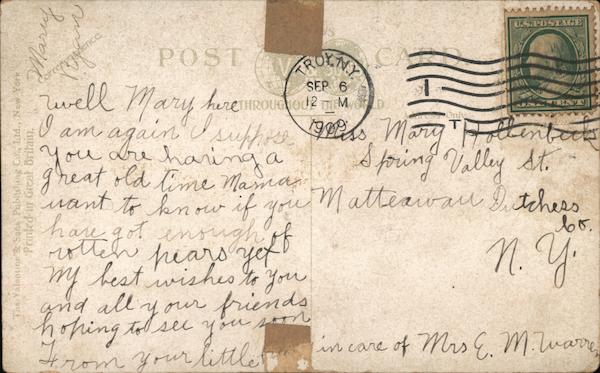 Mary
Ryan
Correspondence
POST CARD
THROUGHOUT THE WORLD
TROY, N.Y.
SEP 6
12 - M
1909
1
T
U.S. POSTAGE
well Mary here
I am again I suppose
you are having a
great old time Mama
want to know if you
have got enough of
rotten pears yet
My best wishes to you
and all your friends
hoping to see you soon
From your little
Miss Mary Hollenbeck
Spring Valley St.
Matteawan Dutchess
Co.
N. Y.
in care of Mrs E. M. Warren
Publishing Co., Ltd., New York
Printed in Great Britain.